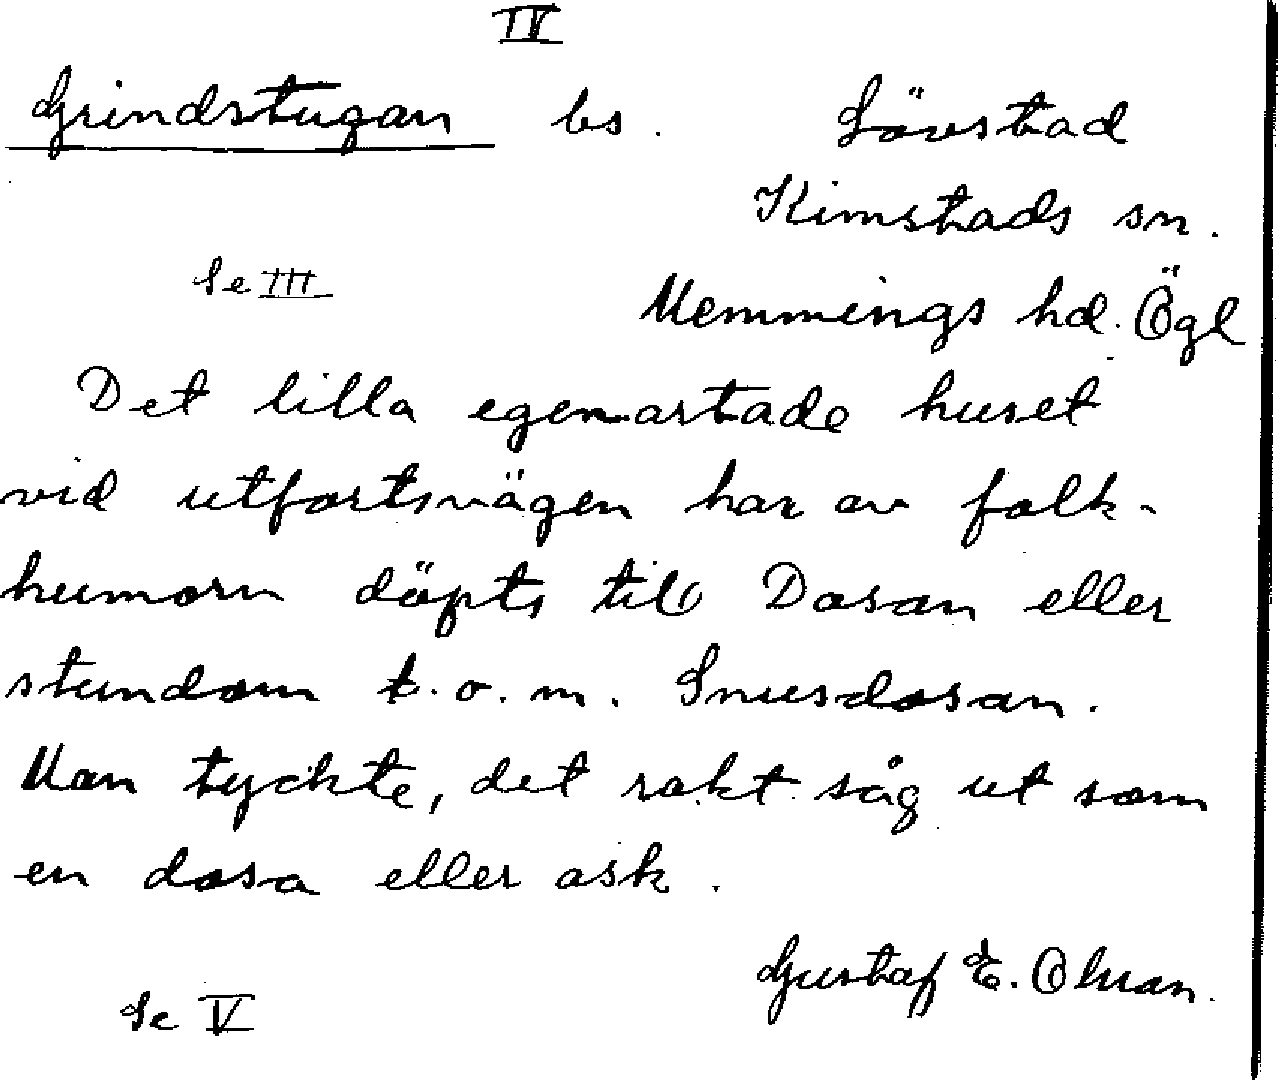 IV
Grindstugan bs. Lövstad
Kimstads sn.
Se III Memmings hd. Ögl
Det lilla egenartade huset
vid utfartsvägen har av folk-
humorn döpts till Dosan eller
stundom t.o.m. Snusdosan.
Man tyckte, det rakt såg ut som
en dosa eller ask.
Gustaf E. Ohman.
Se V